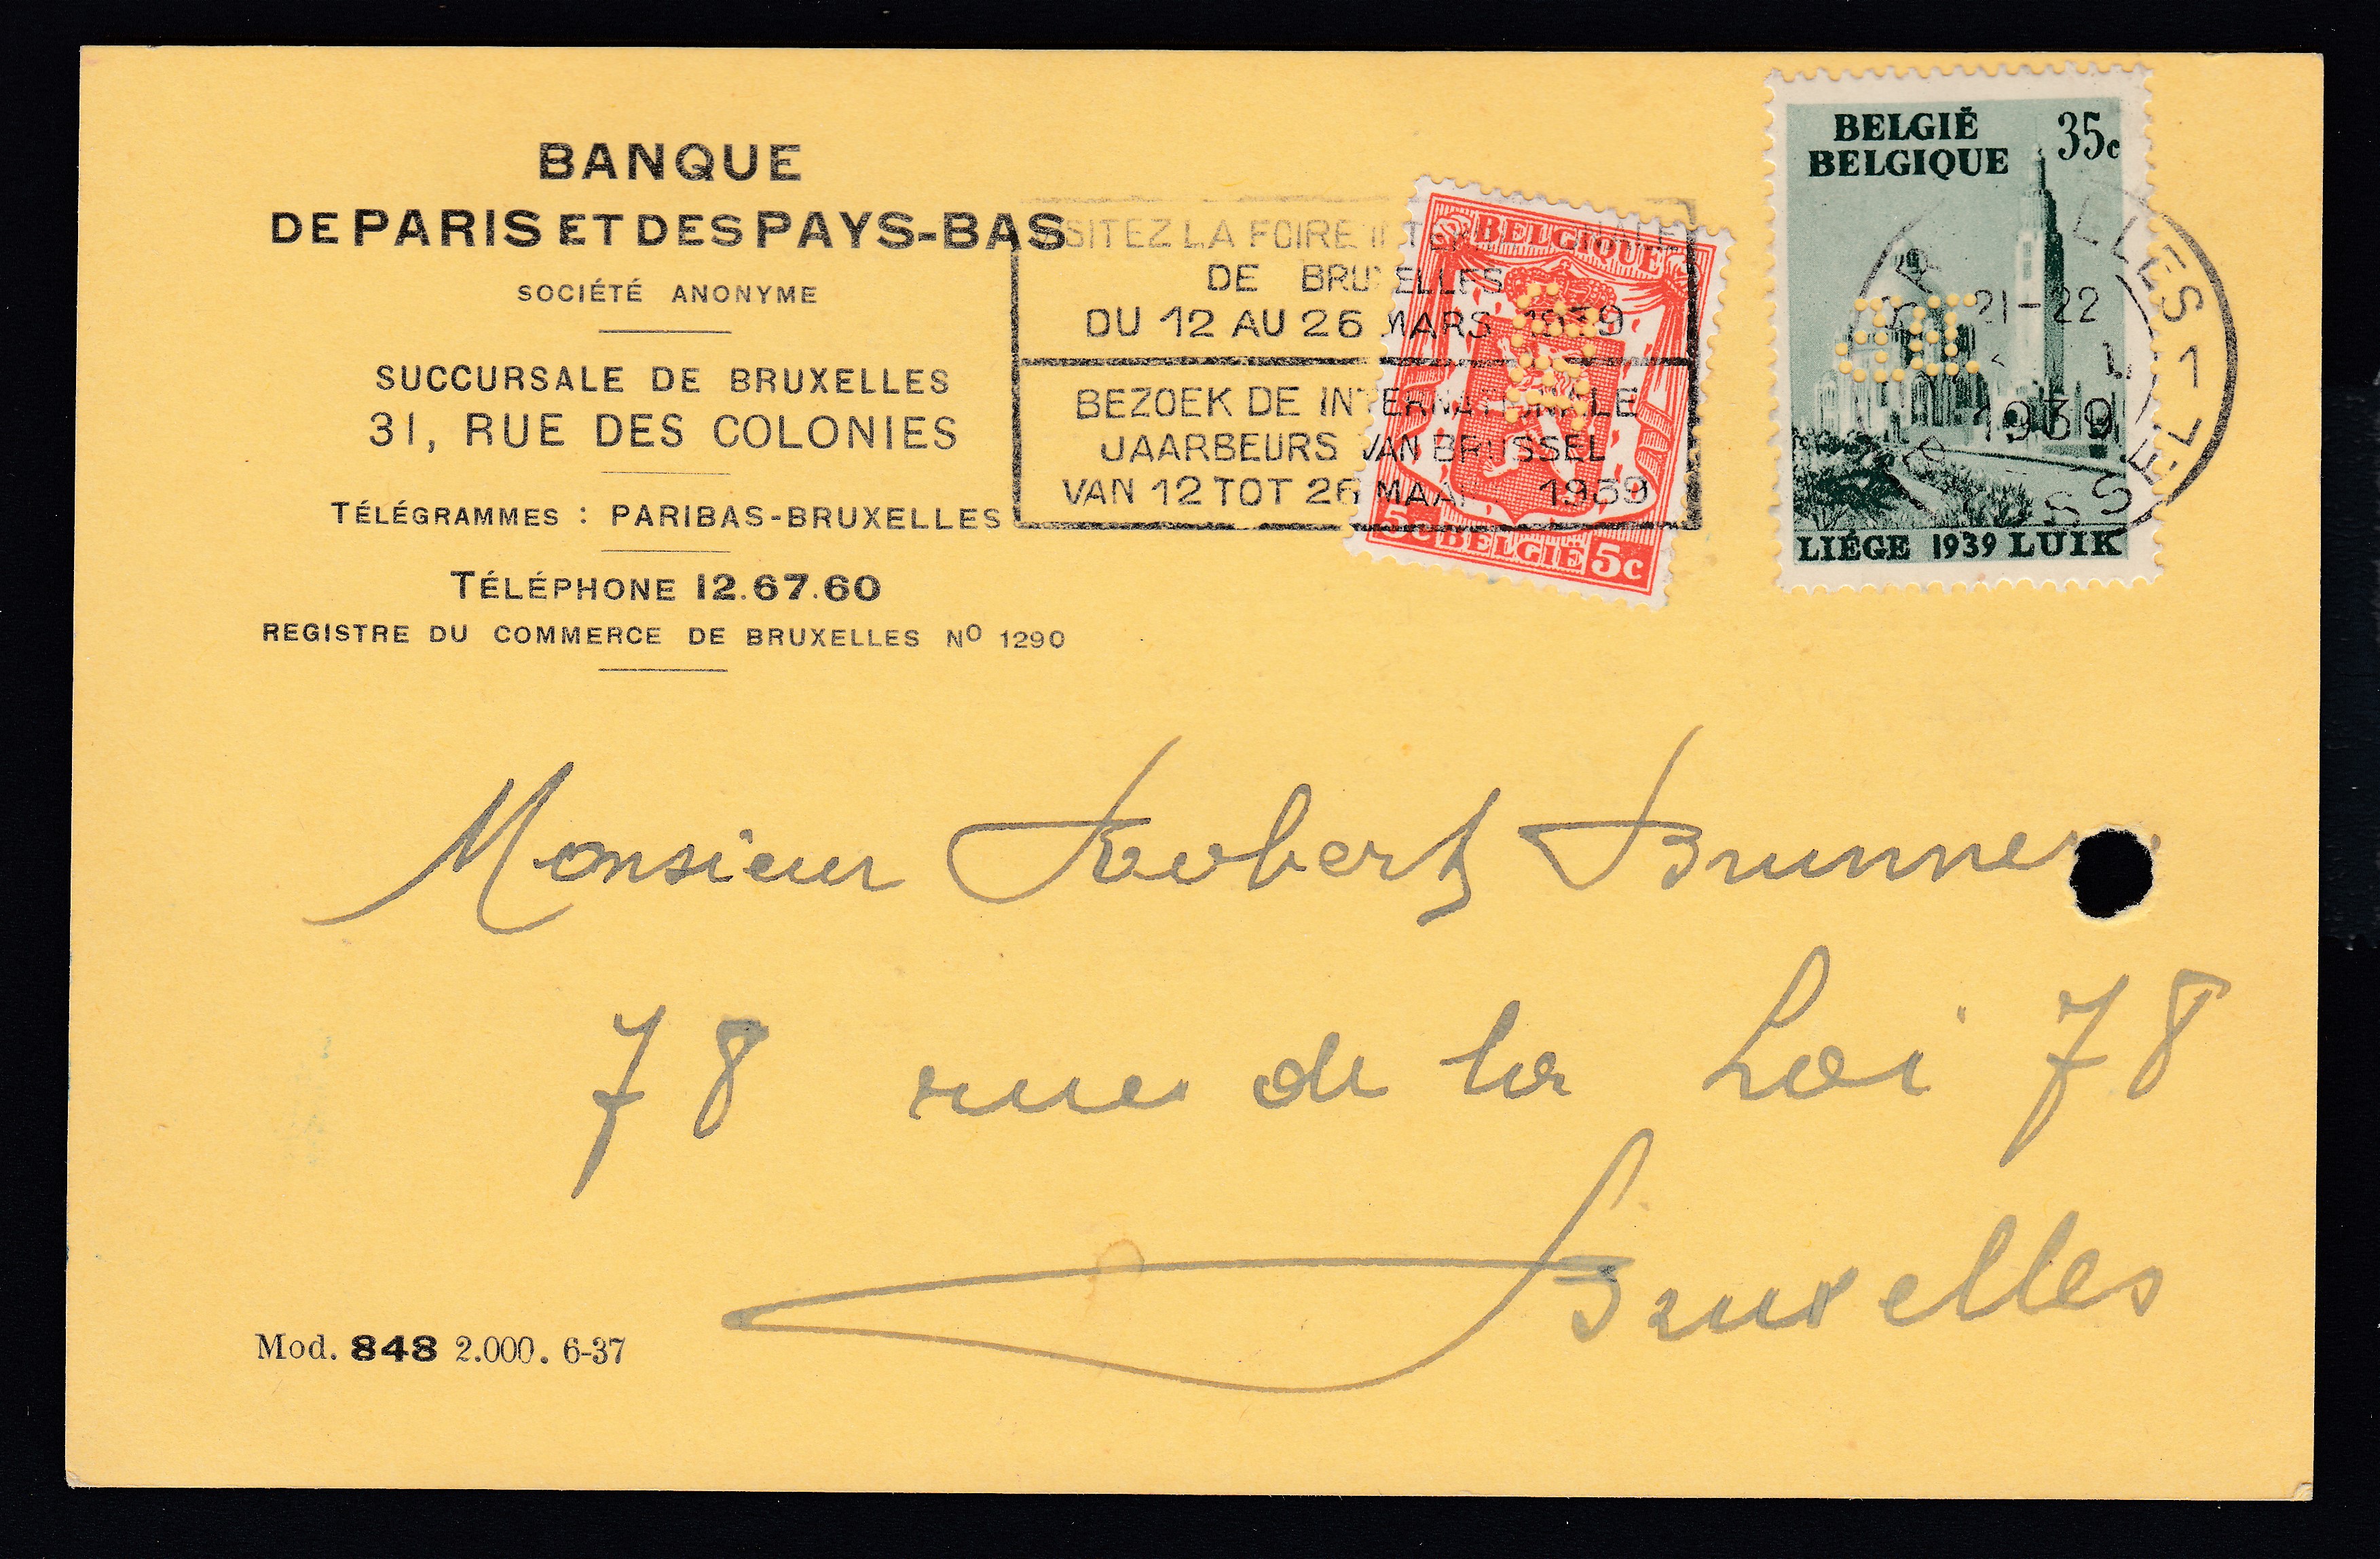 BANQUE
DE PARIS ET DES PAYS-BAS
SOCIÉTÉ ANONYME
SUCCURSALE DE BRUXELLES
31, RUE DES COLONIES
TÉLÉGRAMMES : PARIBAS-BRUXELLES
TÉLÉPHONE 12.67.60
REGISTRE DU COMMERCE DE BRUXELLES Nº 1290
SITEZ LA FOIRE
DE BRUXELLES
DU 12 AU 26 MARS 1939
BEZOEK DE INTERNATIONALE
JAARBEURS VAN BRUSSEL
VAN 12 TOT 26 MAA 1939
BELGIQUE
5c BELGIË 5c
BELGIË
BELGIQUE
35c
LIÉGE 1939 LUIK
ELLES 1
21-22
1939
Monsieur Robert Brunner
78 rue de la Loi 78
Bruxelles
Mod. 848 2.000. 6-37